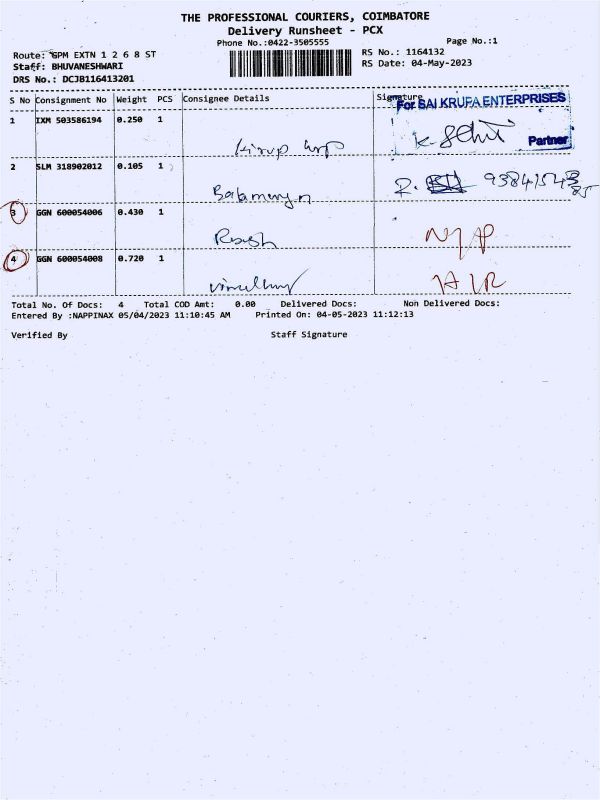 THE PROFESSIONAL COURIERS, COIMBATORE
Delivery Runsheet - PCX
Phone No.:0422-3505555 Page No.:1
Route: GPM EXTN 1 2 6 8 ST RS No.: 1164132
Staff: BHUVANESHWARI RS Date: 04-May-2023
DRS No.: DCJB116413201
S No Consignment No Weight PCS Consignee Details Signature
For SAI KRUPA ENTERPRISES
1 IXM 503586194 0.250 1
Partner
2 SLM 318902012 0.105 1
3 GGN 600054006 0.430 1
4 GGN 600054008 0.720 1
Total No. Of Docs: 4 Total COD Amt: 0.00 Delivered Docs: Non Delivered Docs:
Entered By :NAPPINAX 05/04/2023 11:10:45 AM Printed On: 04-05-2023 11:12:13
Verified By Staff Signature